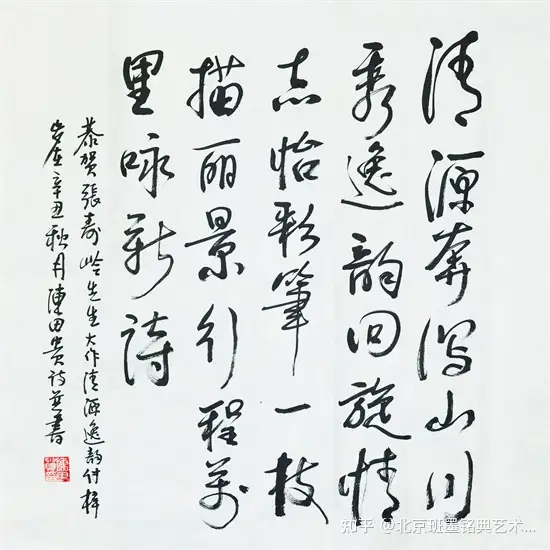 清源奔泻山川
秀逸韵回旋情
志怡彩筆一枝
描丽景行程万
里咏新诗
恭贺張寿岭先生大作清源逸韵付梓
岁在辛丑秋月陳田贵诗并書
知乎 @北京班墨铭典艺术...